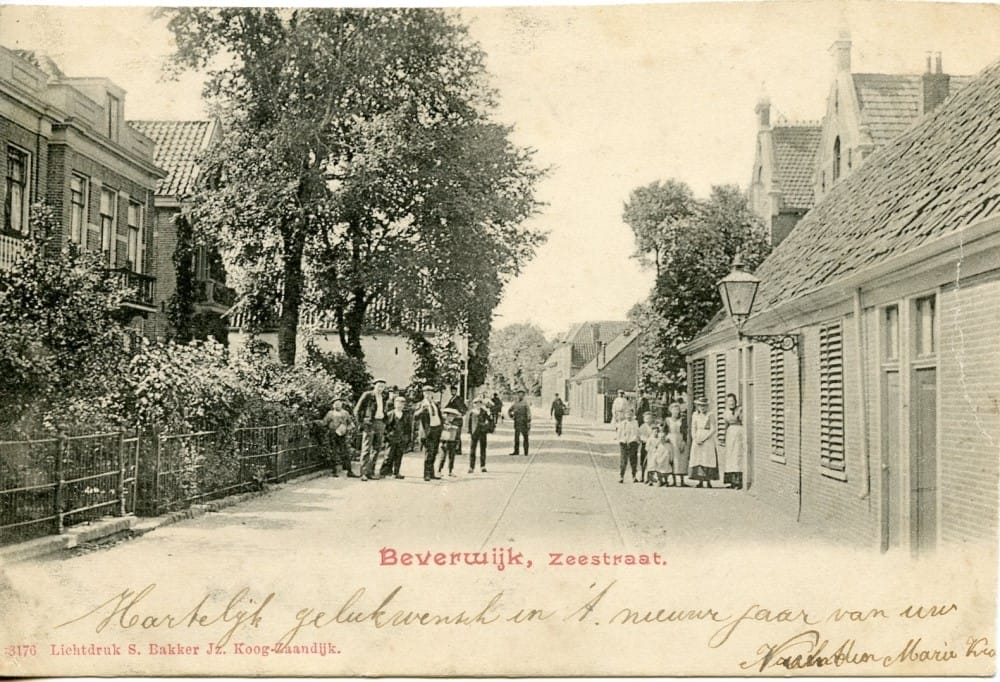 Beverwijk, Zeestraat.
Hartelijk gelukwensch in 't. nieuwe jaar van uw
3176 Lichtdruk S. Bakker Jz. Koog-Zaandijk.
Marie